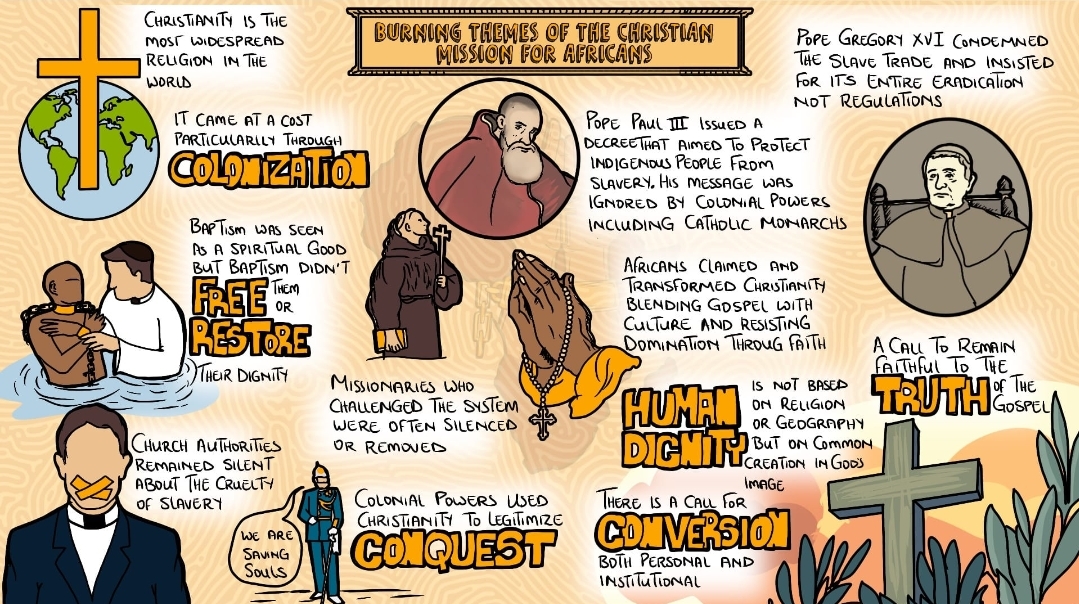 BURNING THEMES OF THE CHRISTIAN
MISSION FOR AFRICANS
CHRISTIANITY IS THE
MOST WIDESPREAD
RELIGION IN THE
WORLD
IT CAME AT A COST
PARTICULARILY THROUGH
COLONIZATION
BAPTISM WAS SEEN
AS A SPIRITUAL GOOD
BUT BAPTISM DIDN'T
FREE THEM
OR
RESTORE
THEIR DIGNITY
CHURCH AUTHORITIES
REMAINED SILENT
ABOUT THE CRUELTY
OF SLAVERY
WE ARE
SAVING
SOULS
COLONIAL POWERS USED
CHRISTIANITY TO LEGITIMIZE
CONQUEST
MISSIONARIES WHO
CHALLENGED THE SYSTEM
WERE OFTEN SILENCED
OR REMOVED
POPE PAUL III ISSUED A
DECREE THAT AIMED TO PROTECT
INDIGENOUS PEOPLE FROM
SLAVERY. HIS MESSAGE WAS
IGNORED BY COLONIAL POWERS
INCLUDING CATHOLIC MONARCHS
POPE GREGORY XVI CONDEMNED
THE SLAVE TRADE AND INSISTED
FOR ITS ENTIRE ERADICATION
NOT REGULATIONS
AFRICANS CLAIMED AND
TRANSFORMED CHRISTIANITY
BLENDING GOSPEL WITH
CULTURE AND RESISTING
DOMINATION THROUG FAITH
HUMAN
DIGNITY
IS NOT BASED
ON RELIGION
OR GEOGRAPHY
BUT ON COMMON
CREATION IN GODS
IMAGE
THERE IS A CALL FOR
CONVERSION
BOTH PERSONAL AND
INSTITUTIONAL
A CALL TO REMAIN
FAITHFUL TO THE
TRUTH OF THE
GOSPEL